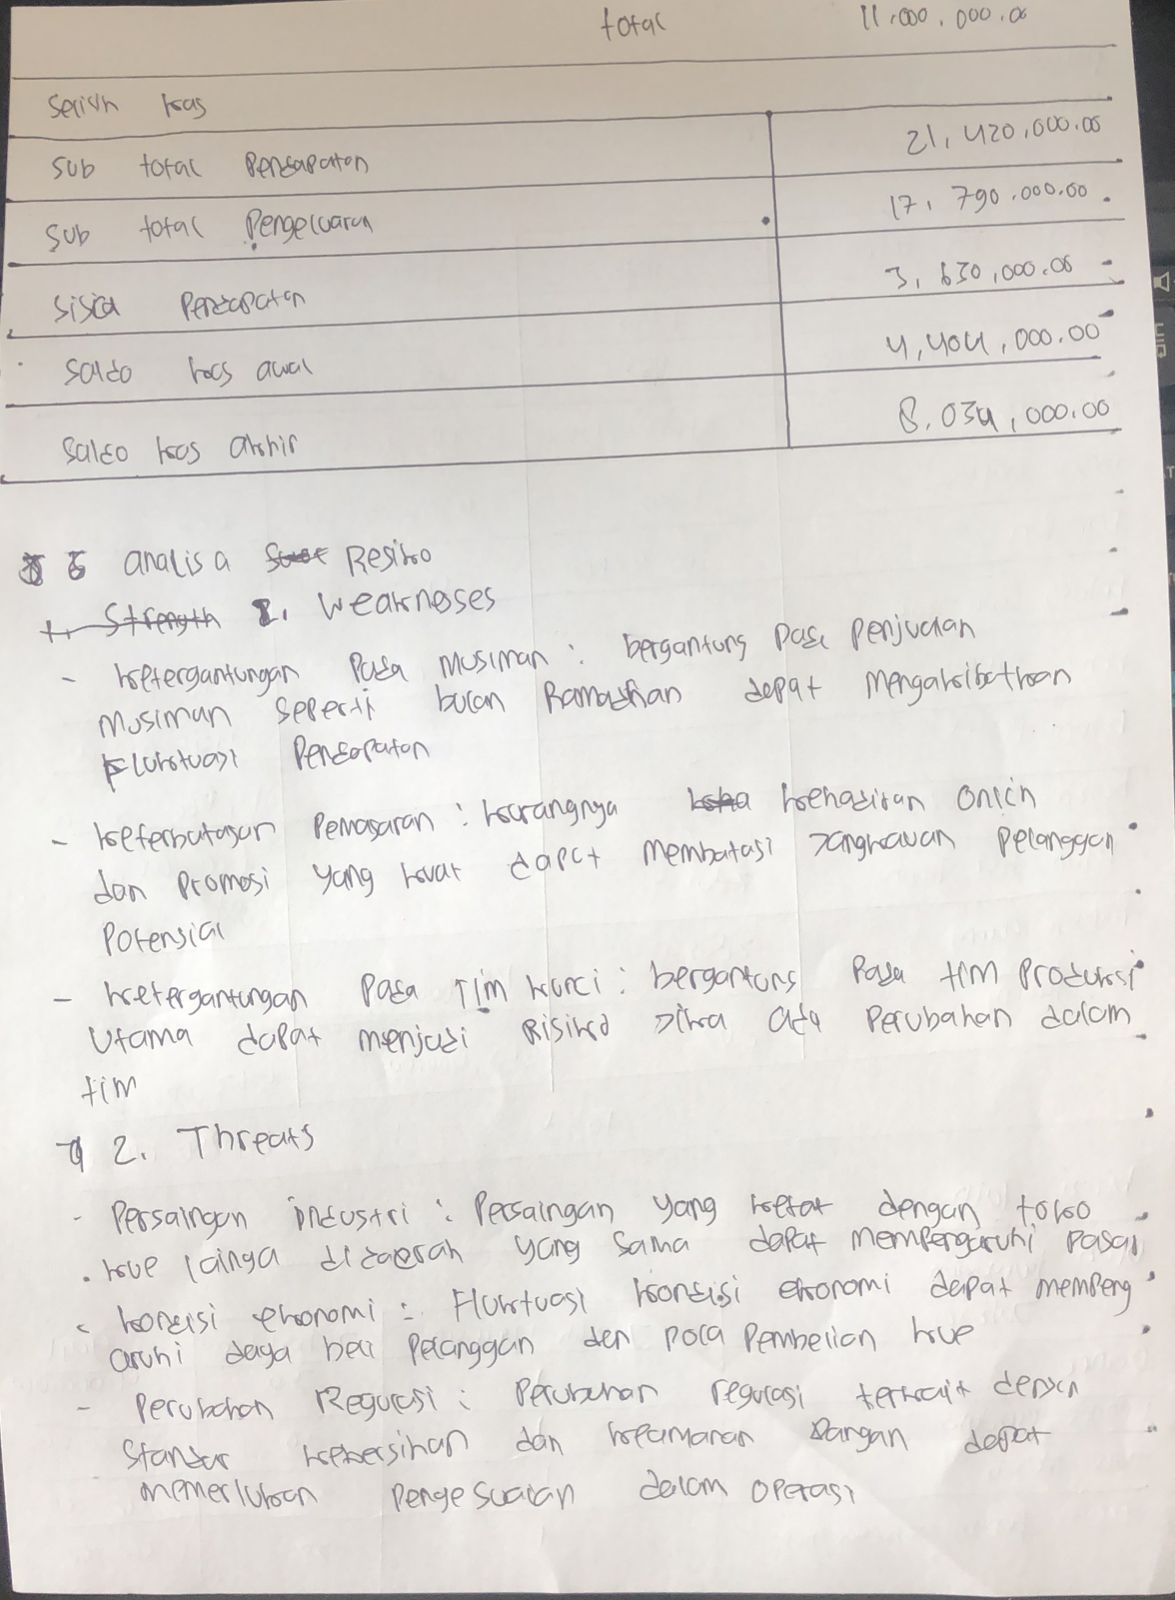 total 11.000.000.00
Selisih kas
Sub total Pendapatan 21,420,000.00
Sub total Pengeluaran 17,790.000.00
Sisia Pendapatan 3,630,000.00
Saldo kas awal 4,404,000.00
Saldo kas akhir 8.034,000.00
6 analisa Resiko
1. Weaknesses
- ketergantungan Pada Musiman : bergantung Pada Penjualan
Musiman seperti bulan Ramadhan dapat Mengakibatkan
Fluktuasi Pendapatan
- keterbatasan Pemasaran : kurangnya kehadiran Onlin
dan Promosi yang kuat dapat membatasi Jangkauan Pelanggan
Potensial
- ketergantungan Pada Tim kunci : bergantung Pada tim Produksi
Utama dapat menjadi Risiko Jika ada Perubahan dalam
tim
2. Threats
- Persaingan industri : Persaingan yang ketat dengan toko
kue lainya di daerah yang sama dapat mempengaruhi pasar
kondisi ekonomi : Fluktuasi kondisi ekonomi dapat mempeng
aruhi daya beli Pelanggan dan pola Pembelian kue
- Perubahan Regulasi : Perubahan regulasi terkait dengan
Standar kebersihan dan keamanan Pangan dapat
memerlukan Pengesuaian dalam operasi